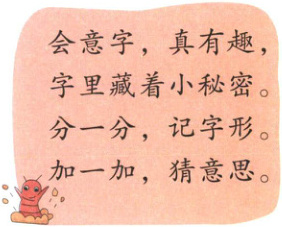 会意字，真有趣，
字里藏着小秘密。
分一分，记字形。
加一加，猜意思。